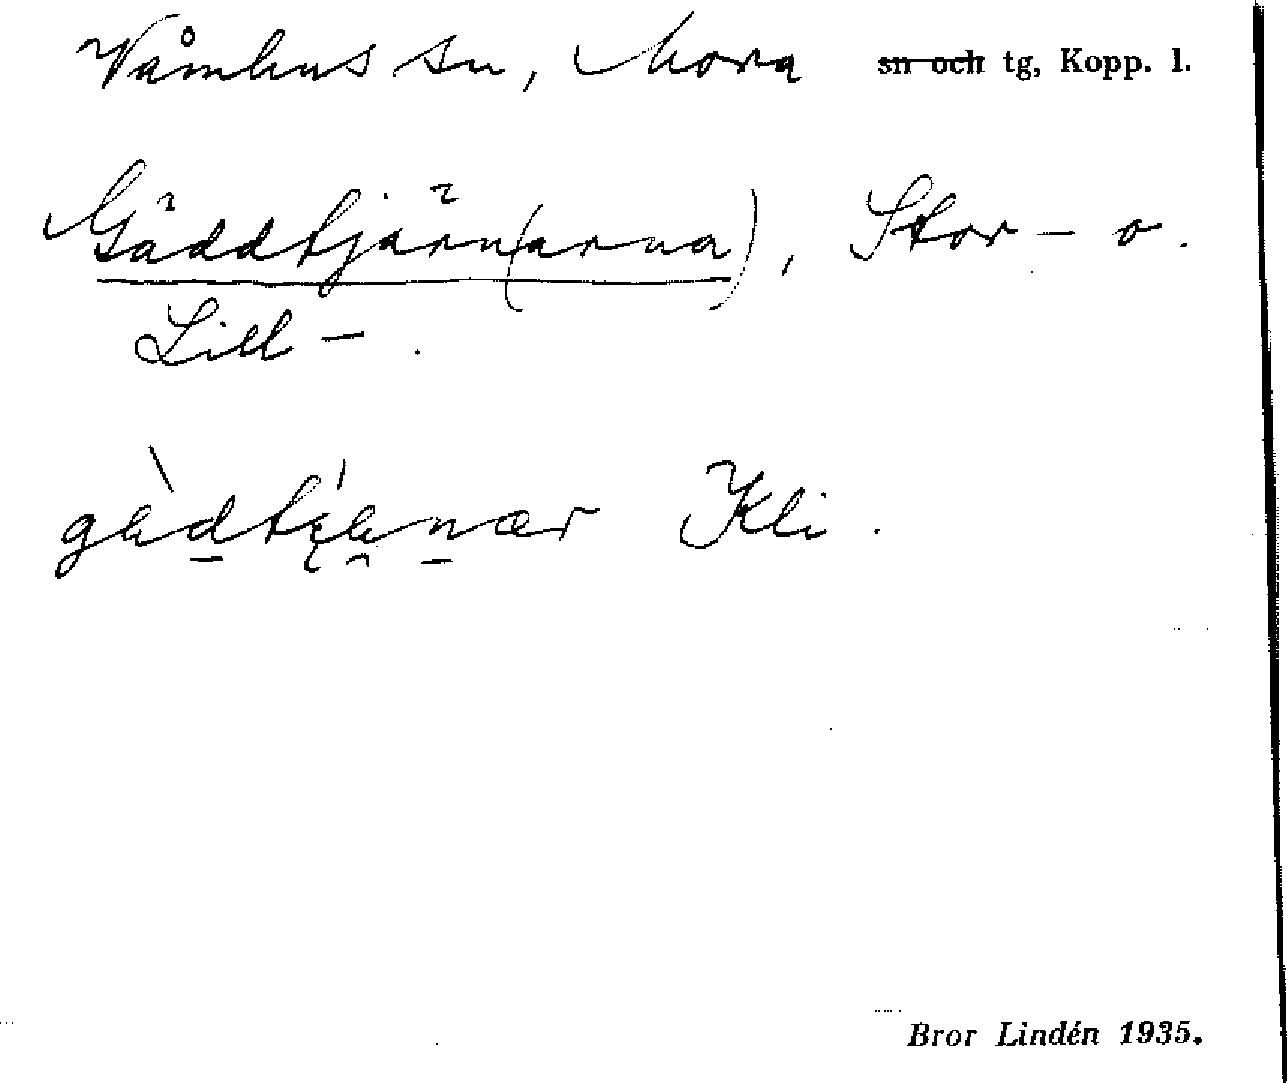 Våmhus sn, Mora sn och tg, Kopp. l.
Gäddtjärn(arna), Stor- o.
Lill-.
Bror Lindén 1935.